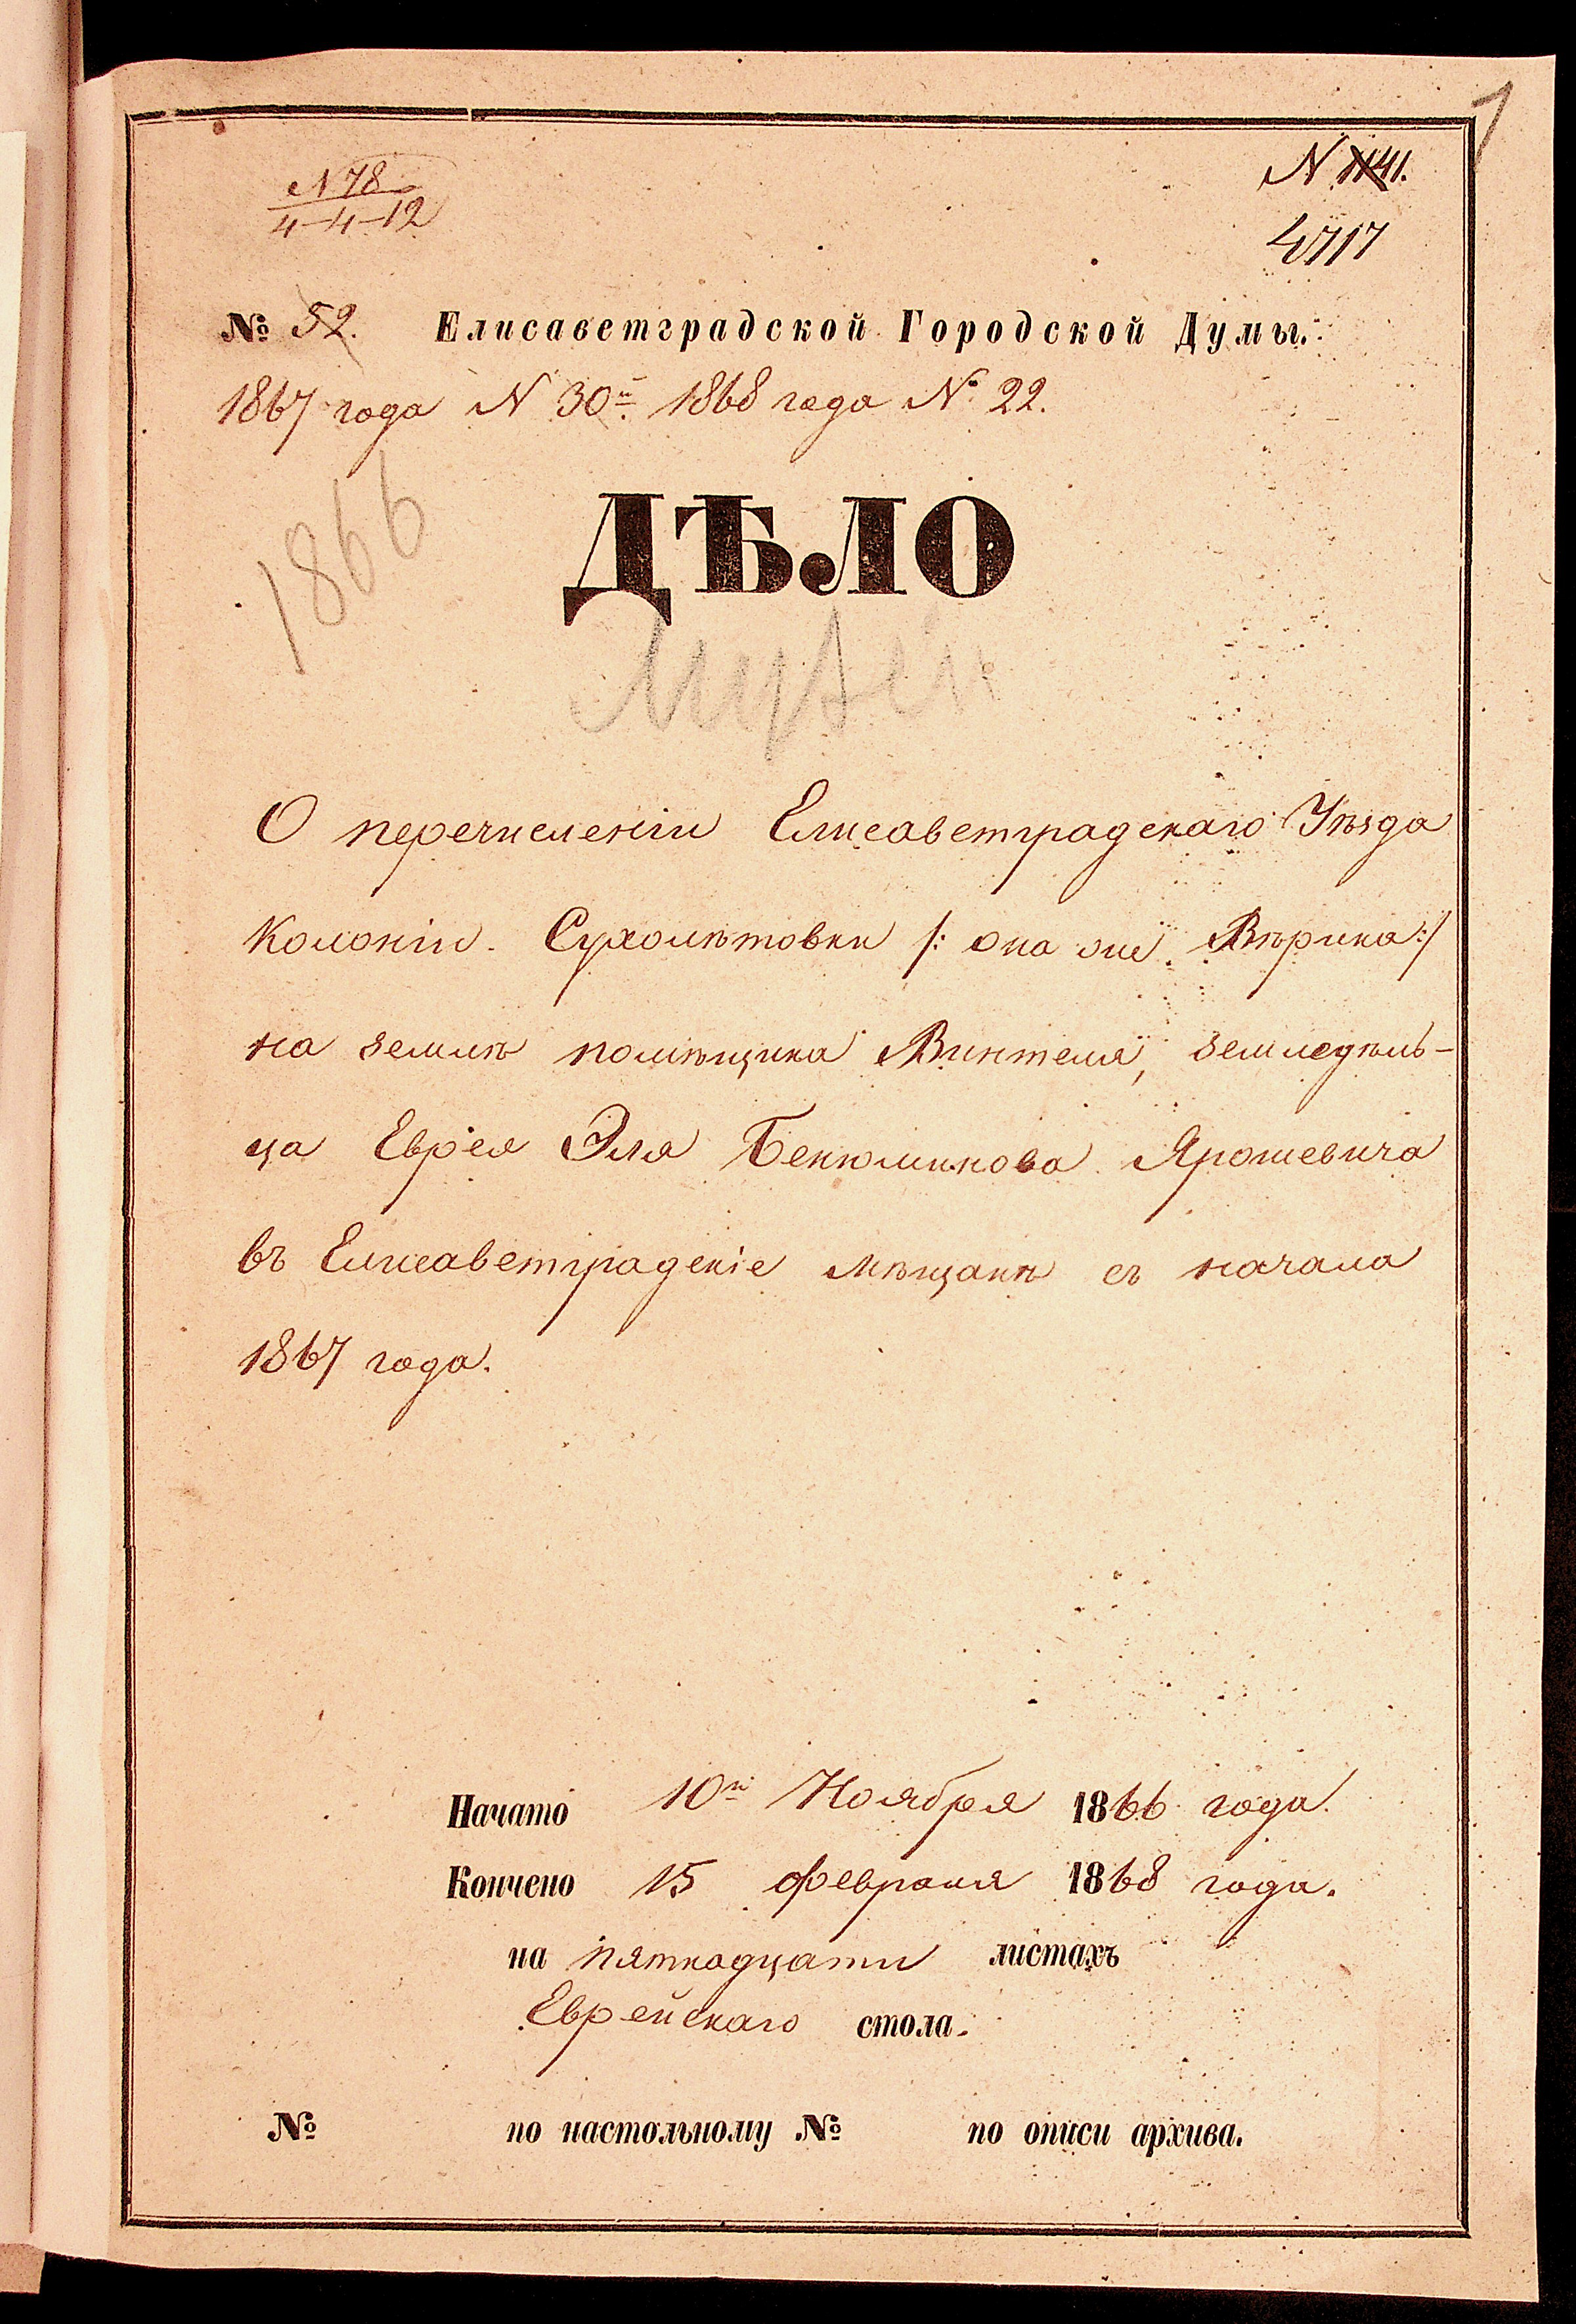 1
N 1141.
N 78
4-4-12
4717
№ 52. Елисаветградской Городской Думы.
1867 года N 30й 1868 года № 22.
1866
ДѢЛО
О перечисленіи Елисаветградскаго Уѣзда
Колоніи Сухолѣтовки /: она же Вѣрина :/
на землѣ помѣщика Винтеля, земледѣль-
ца Еврея Эля Бенюминова Ярошевича
въ Елисаветградскіе мѣщане съ начала
1867 года.
Начато 10го Ноября 1866 года.
Кончено 15 февраля 1868 года.
на пятнадцати листахъ
Еврейскаго стола.
№ по настольному № по описи архива.